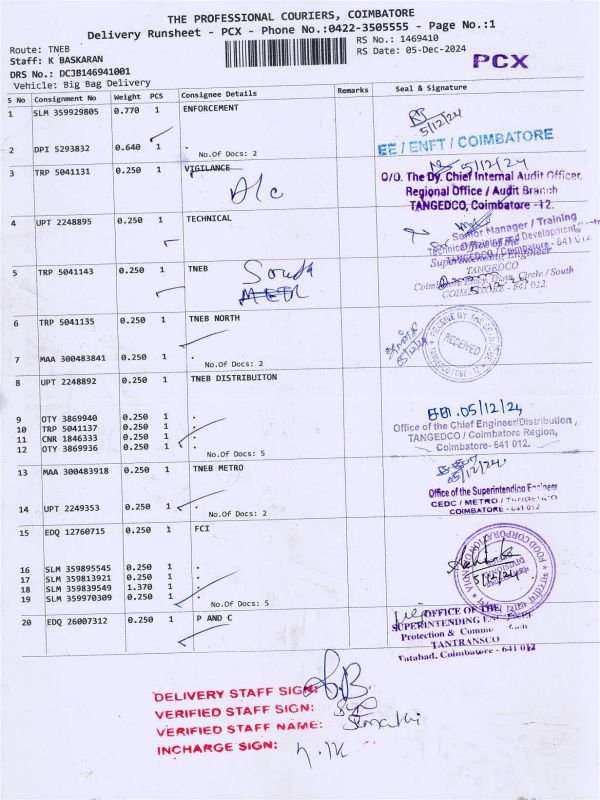 THE PROFESSIONAL COURIERS, COIMBATORE
Delivery Runsheet - PCX - Phone No.:0422-3505555 - Page No.:1
Route: TNEB
RS No.: 1469410
Staff: K BASKARAN
RS Date: 05-Dec-2024
PCX
DRS No.: DCJB146941001
Vehicle: Big Bag Delivery
S No Consignment No Weight PCS Consignee Details Remarks Seal & Signature
1 SLM 359929805 0.770 1 ENFORCEMENT
5/12/24
2 DPI 5293832 0.640 1 .
No.Of Docs: 2
EE / ENFT / COIMBATORE
3 TRP 5041131 0.250 1 VIGILANCE
A/c
5/12/24
O/O. The Dy. Chief Internal Audit Officer,
Regional Office / Audit Branch
TANGEDCO, Coimbatore -12.
4 UPT 2248895 0.250 1 TECHNICAL
Senior Manager / Training
Technical Training and Development
TANGEDCO / Coimbatore - 641 012
5 TRP 5041143 0.250 1 TNEB
South
Office of the
Superintending Engineer
TANGEDCO
Circle / South
COIMBATORE - 641 012.
6 TRP 5041135 0.250 1 TNEB NORTH
05/12/24
RECEIVED
7 MAA 300483841 0.250 1 .
No.Of Docs: 2
8 UPT 2248892 0.250 1 TNEB DISTRIBUITON
9 OTY 3869940 0.250 1 .
10 TRP 5041137 0.250 1 .
11 CNR 1846333 0.250 1 .
12 OTY 3869936 0.250 1 .
No.Of Docs: 5
05/12/24
Office of the Chief Engineer/Distribution,
TANGEDCO / Coimbatore Region,
Coimbatore- 641 012.
13 MAA 300483918 0.250 1 TNEB METRO
05/12/24
14 UPT 2249353 0.250 1 .
No.Of Docs: 2
Office of the Superintending Engineer
CEDC / METRO / TANGEDCO
COIMBATORE - 641 012
15 EDQ 12760715 0.250 1 FCI
16 SLM 359895545 0.250 1 .
17 SLM 359813921 0.250 1 .
18 SLM 359839549 1.370 1 .
19 SLM 359970309 0.250 1 .
No.Of Docs: 5
FOOD CORPORATION
5/12/24
20 EDQ 26007312 0.250 1 P AND C
OFFICE OF THE
SUPERINTENDING
Protection &
TANTRANSCO
Tatabad, Coimbatore - 641 012
DELIVERY STAFF SIGN:
VERIFIED STAFF SIGN:
VERIFIED STAFF NAME:
INCHARGE SIGN: